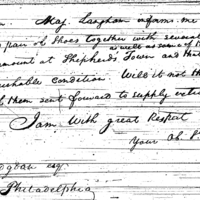 Maj. Langham informs me
pair of Shoes together with several
as well as some of
amount at Shepherds Town and
condition. Will it not
them sent forward to supply
I am With great Respect
Your ob.
esq.
Philadelphia